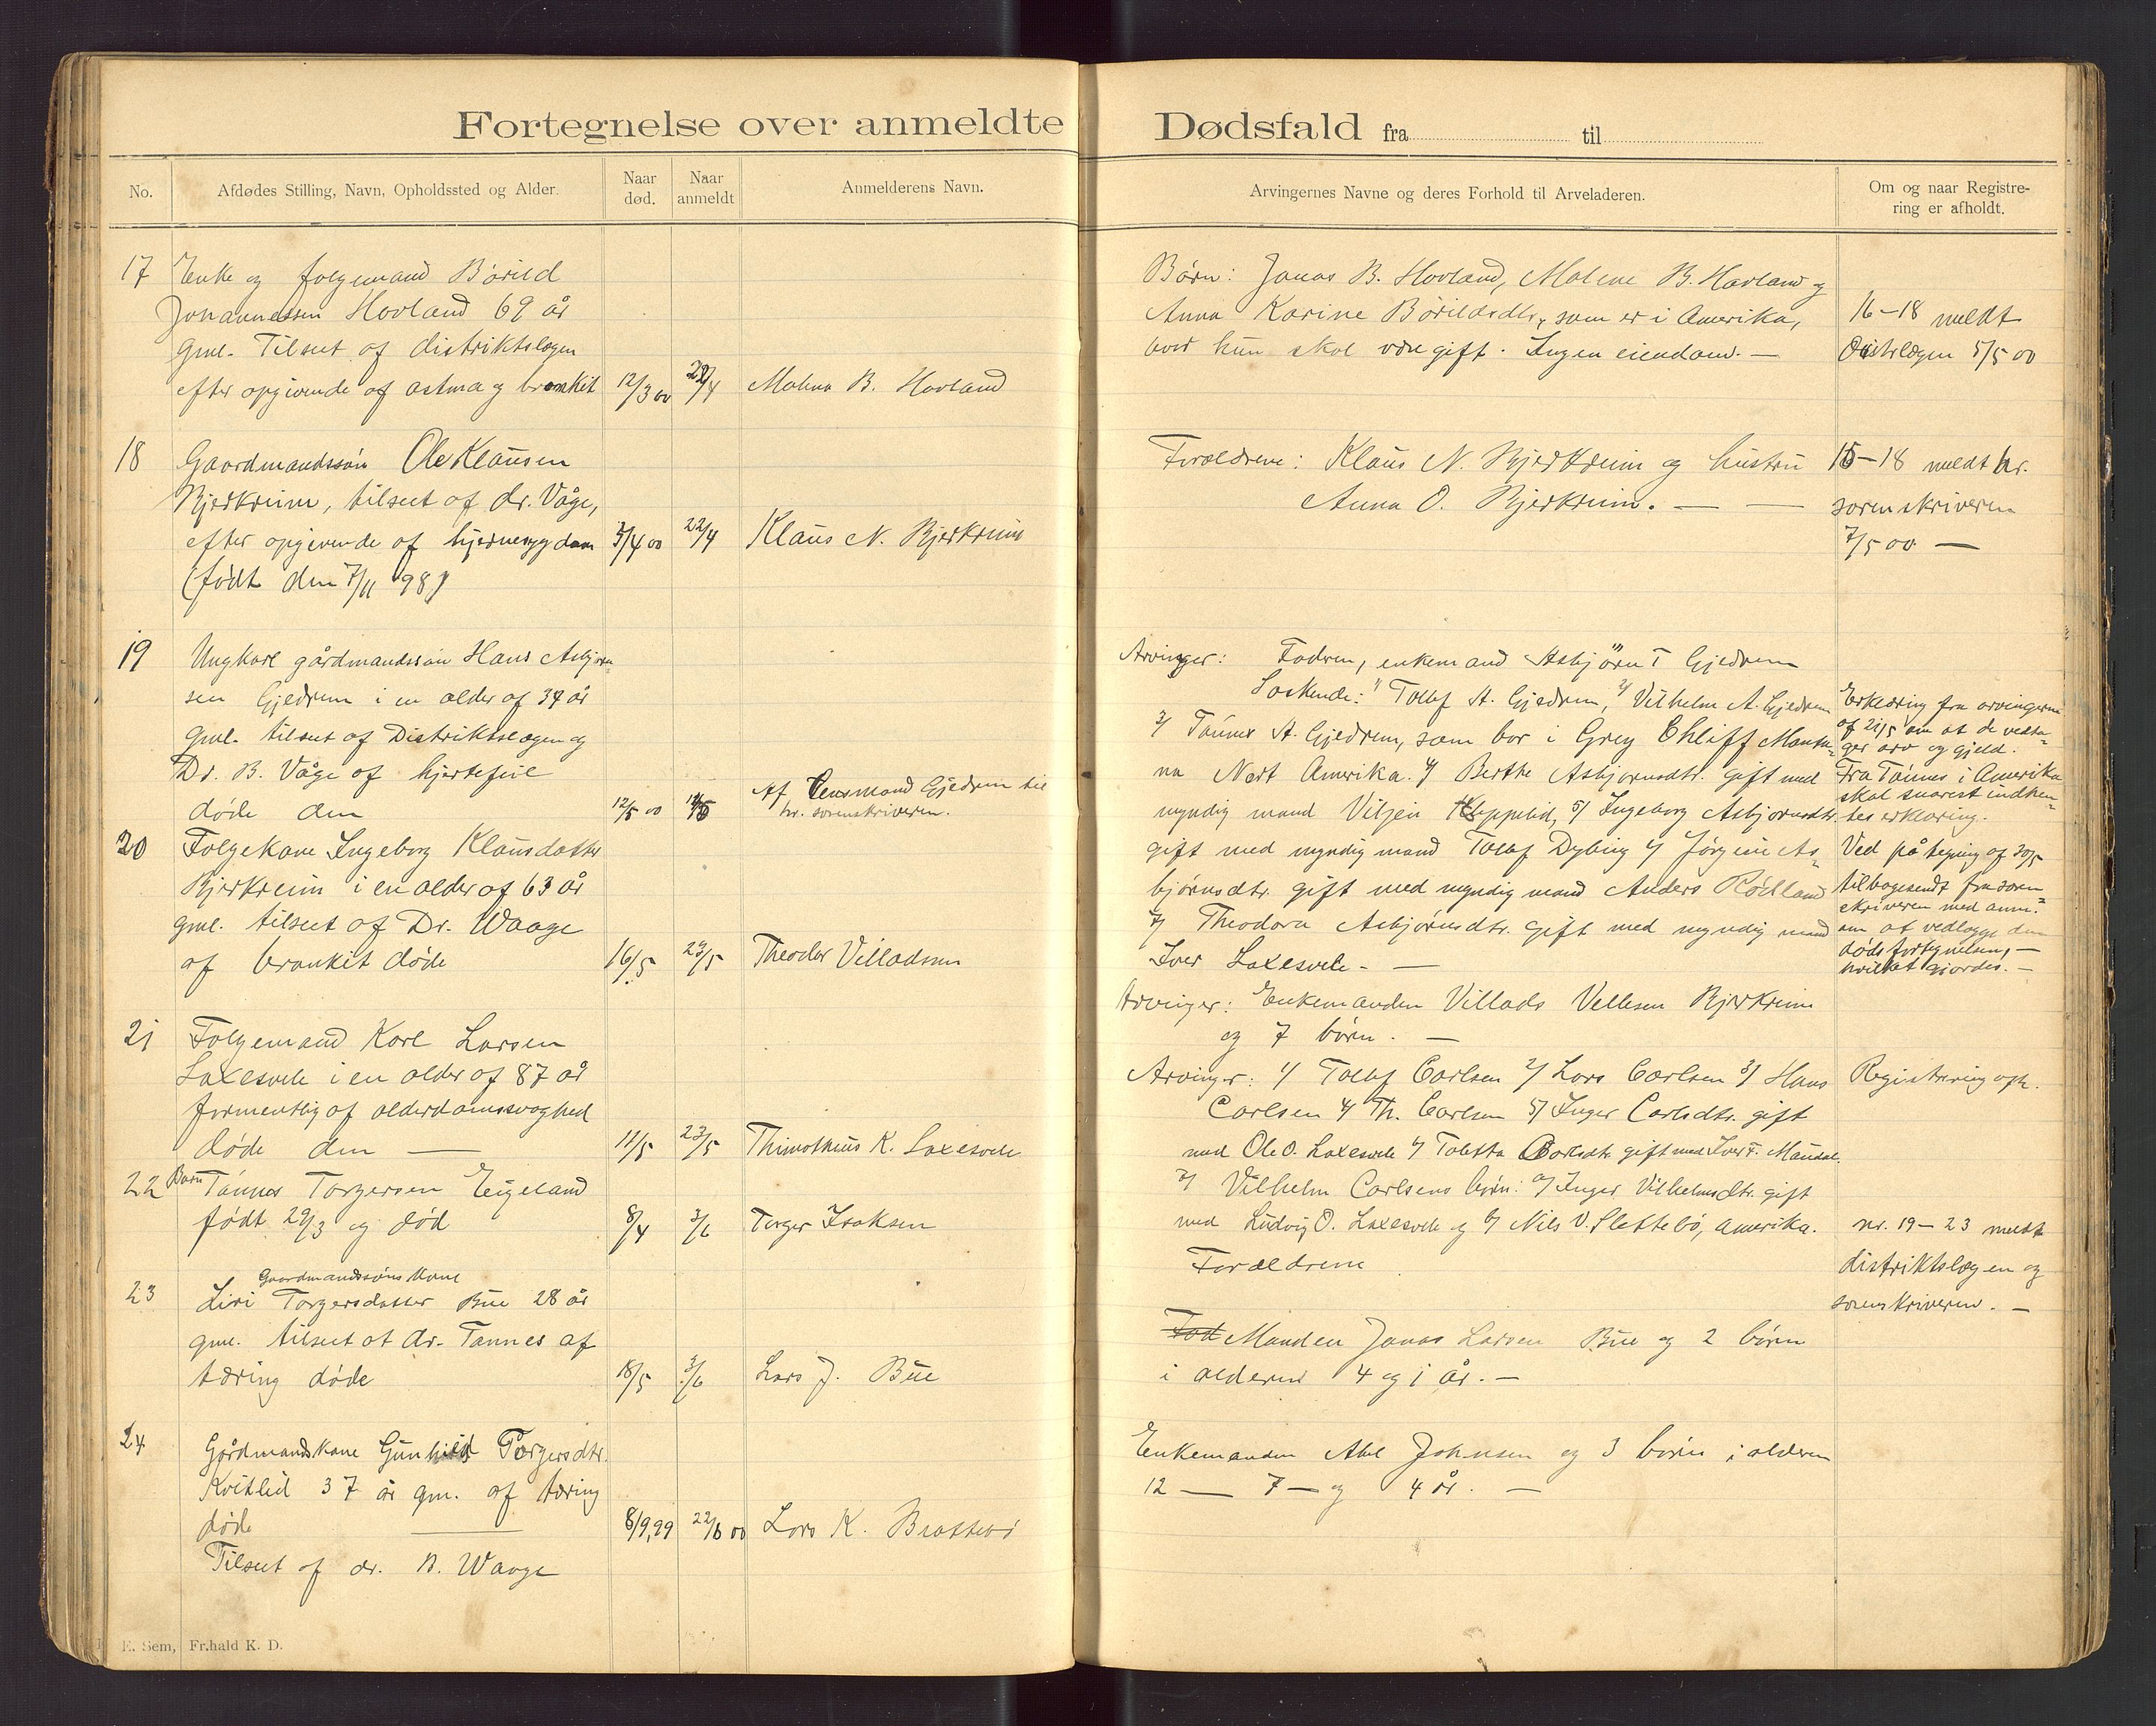 Fortegnelse over anmeldte
No.
Afdødes Stilling, Navn, Opholdssted og Alder.
Naar død.
Naar anmeldt
Anmelderens Navn.
17 Enke og folgemand Bórild
Johannessen Hovland 69 år
gml. Tilseet af distriktslægen
efter opgivende af astma og bronkit 12/3 00 22/4 Malena B. Hovland
18 Gaardmandssøn Ole Klausen
Bjerkreim, tilseet af dr. Våge,
efter opgivende af hjernesygdom 3/4 00 22/4 Klaus N. Bjerkreim
(født den 7/11 98)
19 Ungkarl gårdmandssøn Hans Asbjørn-
sen Gjedrem i en alder af 34 år
gml. tilseet af Distriktslægen og
Dr. B. Våge af hjertefeil
døde den 12/5 00 Af Lensmand Gjedrem til
hr. sorenskriveren.
20 Folgekone Ingeborg Klausdatter
Bjerkreim i en alder af 63 år
gml. tilseet af Dr. Waage
af bronkit døde 16/5 23/5 Theodor Villadsen
21 Folgemand Karl Larsen
Laxesvele i en alder af 87 år
formentlig af alderdomssvaghed
døde den — 11/5 23/5 Thimotheus K. Laxesvele
22 Barn Tønnes Torgersen Eigeland
født 29/3 og død 8/4 3/6 Torger Isaksen
Gaardmandssøns kone
23 Siri Torgersdatter Bue 28 år
gml. tilseet af dr. Tannes af
tæring døde 18/5 3/6 Lars J. Bue
24 Gårdmandskone Gunhild Torgersdtr.
Kvitlid 37 år gm. af tæring
døde — 8/9,99 22/6 00 Lars K. Brattebø
Tilseet af dr. B. Waage
E. Sem, Fr.hald K. D.
Dødsfald fra til
Arvingernes Navne og deres Forhold til Arveladeren.
Om og naar Registre-
ring er afholdt.
Børn: Jonas B. Hovland, Malene B. Hovland og
Anna Karine Børildsdtr, som er i Amerika,
hvor hun skal være gift. Ingen eiendom. —
16-18 meldt
Distrlægen 5/5 00
Forældrene: Klaus N. Bjerkreim og hustru
Anna O. Bjerkreim. — —
16-18 meldt hr.
sorenskriveren
7/5 00 —
Arvinger: Fadren, enkemand Asbjørn T Gjedrem
Søskende: 1/ Tollef A. Gjedrem, 2/ Vilhelm A. Gjedrem
3/ Tønnes A. Gjedrem, som bor i Grey Chliff Monta-
na Nort Amerika. 4/ Berthe Asbjørnsdtr. gift med
myndig mand Viljen Kleppelid, 5/ Ingeborg Asbjørnsdtr.
gift med myndig mand Tollef Dybing 6/ Jørgine As-
bjørnsdtr. gift med myndig mand Anders Rødland
7/ Theodora Asbjørnsdtr. gift med myndig mand
Iver Laxesvele. —
Erklæring fra arvingerne
af 21/5 om at de vedta-
ger arv og gjeld.
Fra Tønnes i Amerika
skal snarest indhen-
tes erklæring.
Ved påtegning af 30/5
tilbagesendt fra soren-
skriveren med anm.
om at vedlægge den
dødsfortegnelsen, —
hvilket gjordes. —
Arvinger: Enkemanden Villads Vellesen Bjerkreim
og 7 børn. —
Arvinger: 1/ Tollef Carlsen 2/ Lars Carlsen 3/ Hans
Carlsen 4/ Th. Carlsen 5/ Inger Carlsdtr. gift
med Ole O. Laxesvele 6/ Toletta Carlsdtr gift med Iver T. Maudal.
7/ Vilhelm Carlsens børn: a/ Inger Vilhelmsdtr. gift
med Ludvig O. Laxesvele og b/ Nils V. Slettebø, amerika.
Registrering oph.
Forældrene
nr. 19-23 meldt
distriktslægen og
sorenskriveren. —
Fad Manden Jonas Larsen Bue og 2 børn
i alderen 4 og 1 år. —
Enkemanden Abel Johnsen og 3 børn i alderen
12 — 7 — og 4 år. —